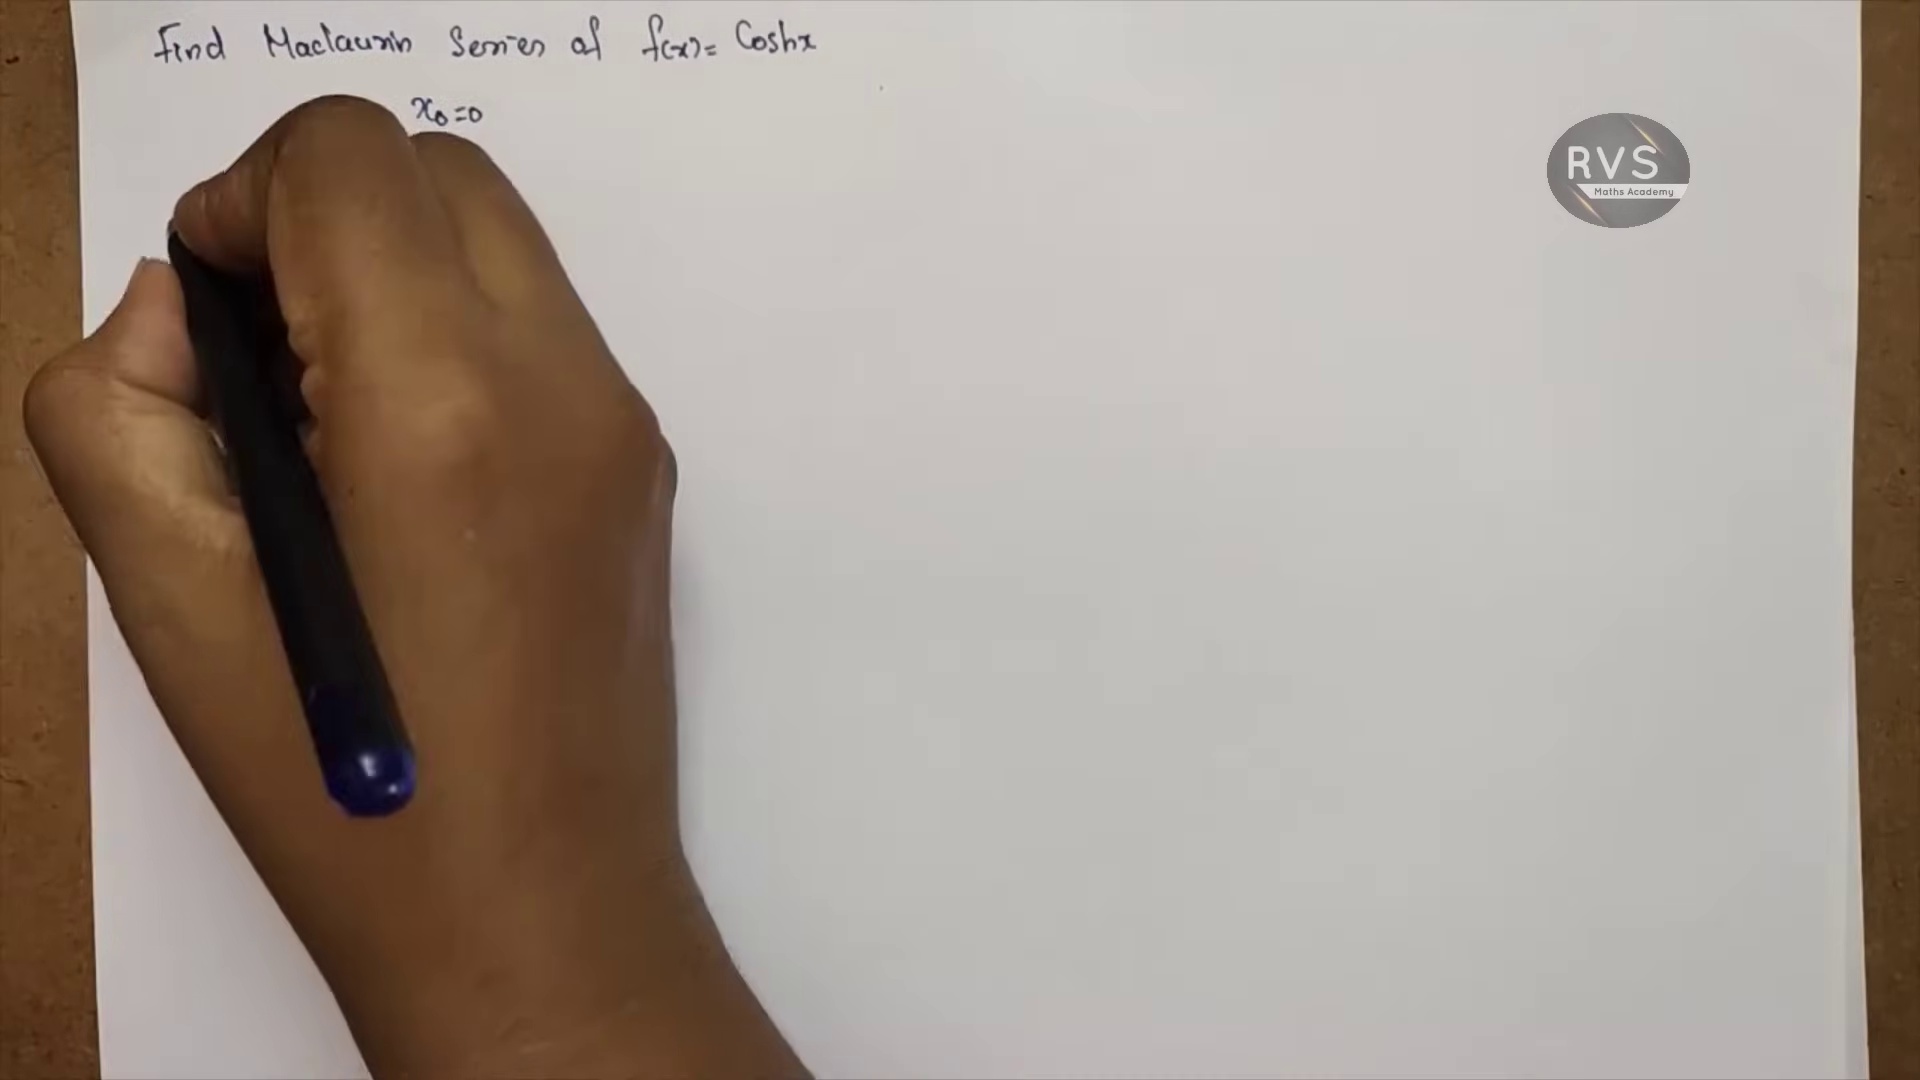 Find Maclaurin Series of f(x) = Coshx
x₀ = 0
RVS
Maths Academy